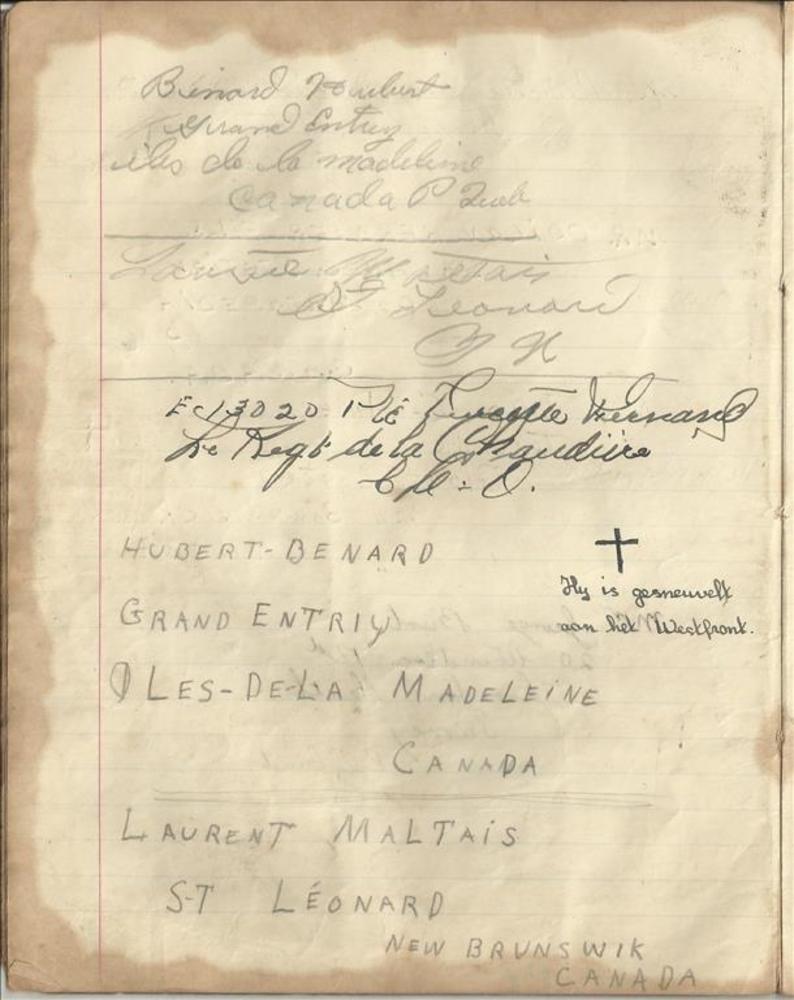 Bénard Hubert
Grand Entry
iles de la madeleine
Canada P Queb
Maltais
St Leonard
N
E-13020 Pte Fernand
Le Regt de la Chaudière
C.
HUBERT-BENARD
GRAND ENTRIY
ILES-DE-LA MADELEINE
CANADA
Hy is gesneuvelt
aan het Westfront.
LAURENT MALTAIS
ST LÉONARD
NEW BRUNSWIK
CANADA